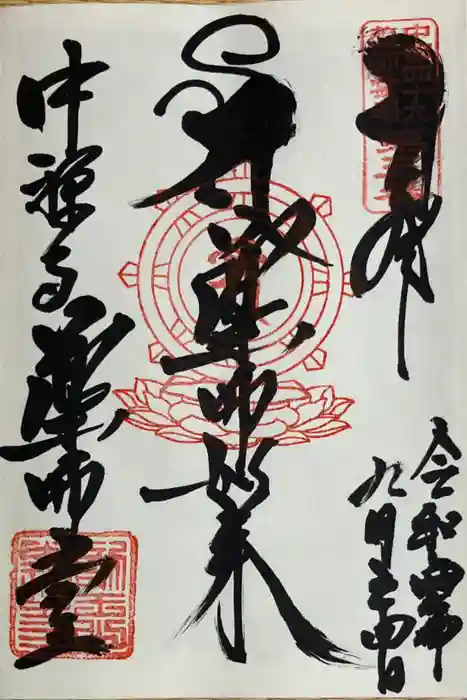 奉拝
令和四年
九月二十四日
薬師如来
中禅寺薬師堂